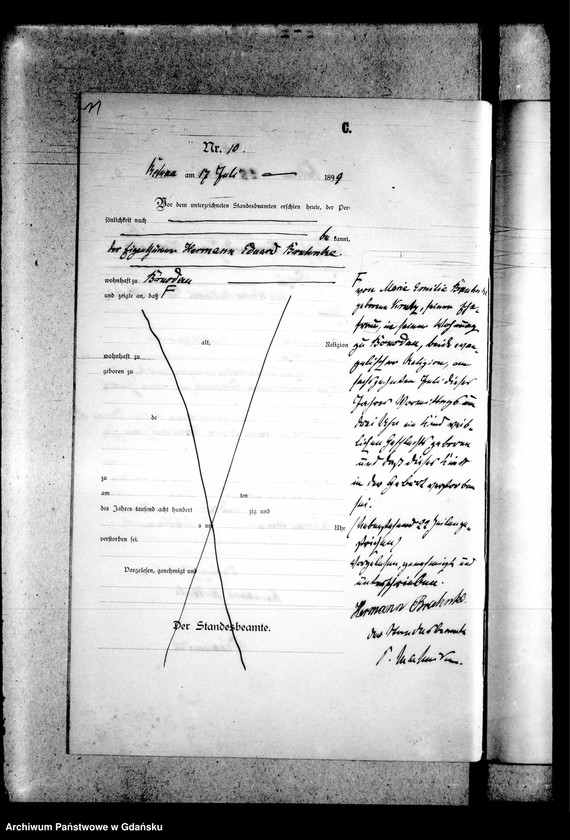 C.
Nr. 10.
am 17 Juli 1899
Vor dem unterzeichneten Standesbeamten erschien heute, der Per-
sönlichkeit nach
be kannt,
der Eigenthümer Hermann Eduard
wohnhaft zu
und zeigte an, daß F
alt, Religion
wohnhaft zu
geboren zu
de
zu
am ten
des Jahres tausend acht hundert zig und
s um Uhr
verstorben sei.
Vorgelesen, genehmigt und
Der Standesbeamte.
F
von Marie Emilie
geborene seiner Ehe-
frau, in seiner Wohnung
zu beide evan-
gelischer Religion, am
sechszehnten Juli dieses
Jahres Vormittags um
drei Uhr ein Kind weib-
lichen Geschlechts geboren
und daß dieses Kind
in der Geburt verstorben
sei.
(Nebenstehend 22 Zeilen ge-
strichen)
Vorgelesen, genehmigt und
unterschrieben.
Hermann
der Standesbeamte
Archiwum Państwowe w Gdańsku